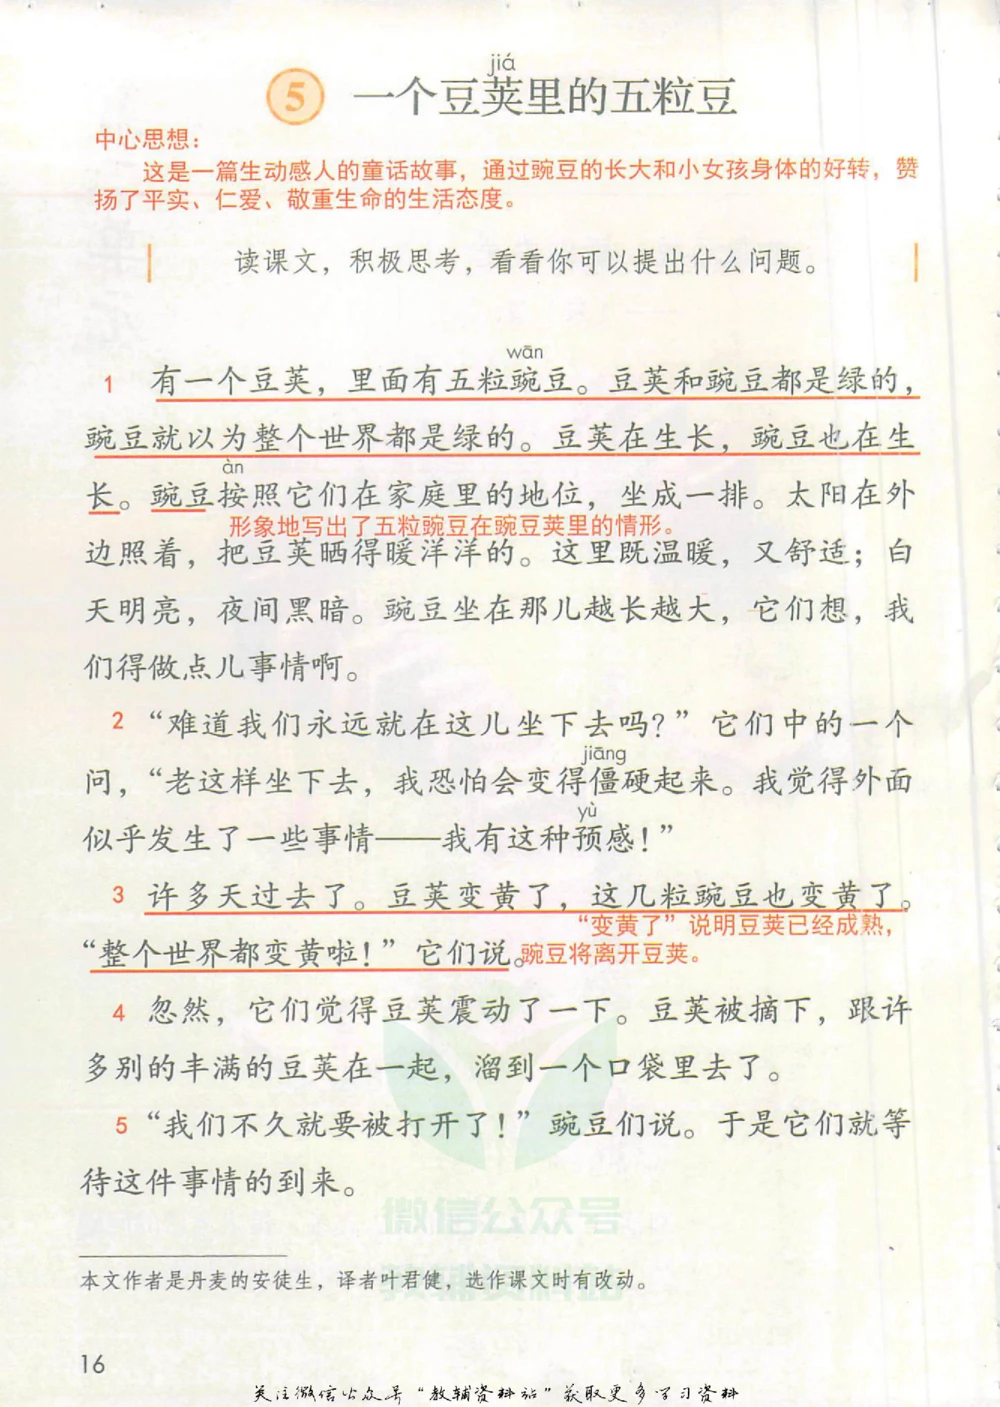 jiá
5 一个豆荚里的五粒豆
中心思想：
这是一篇生动感人的童话故事，通过豌豆的长大和小女孩身体的好转，赞
扬了平实、仁爱、敬重生命的生活态度。
读课文，积极思考，看看你可以提出什么问题。
wān
1 有一个豆荚，里面有五粒豌豆。豆荚和豌豆都是绿的，
豌豆就以为整个世界都是绿的。豆荚在生长，豌豆也在生
àn
长。豌豆按照它们在家庭里的地位，坐成一排。太阳在外
形象地写出了五粒豌豆在豌豆荚里的情形。
边照着，把豆荚晒得暖洋洋的。这里既温暖，又舒适；白
天明亮，夜间黑暗。豌豆坐在那儿越长越大，它们想，我
们得做点儿事情啊。
2 “难道我们永远就在这儿坐下去吗？”它们中的一个
jiāng
问，“老这样坐下去，我恐怕会变得僵硬起来。我觉得外面
yù
似乎发生了一些事情——我有这种预感！”
3 许多天过去了。豆荚变黄了，这几粒豌豆也变黄了。
“变黄了”说明豆荚已经成熟，
“整个世界都变黄啦！”它们说。豌豆将离开豆荚。
4 忽然，它们觉得豆荚震动了一下。豆荚被摘下，跟许
多别的丰满的豆荚在一起，溜到一个口袋里去了。
5 “我们不久就要被打开了！”豌豆们说。于是它们就等
待这件事情的到来。
微信公众号
教辅资料站
本文作者是丹麦的安徒生，译者叶君健，选作课文时有改动。
16
关注微信公众号“教辅资料站”获取更多学习资料